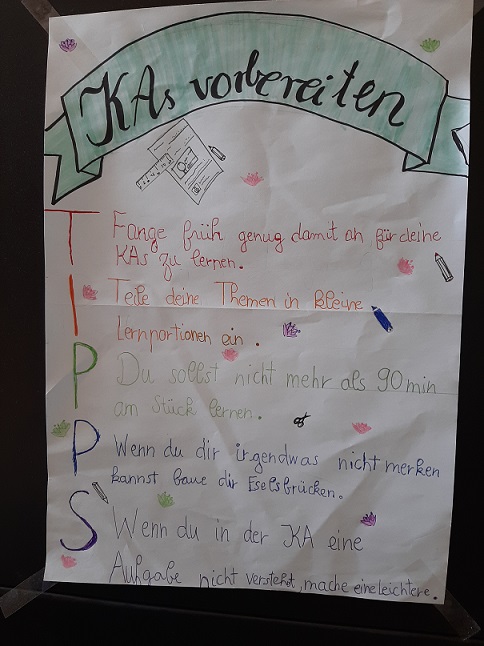 KAs vorbereiten
TIPPS
Fange früh genug damit an für deine
KAs zu lernen.
Teile deine Themen in kleine
Lernportionen ein.
Du sollst nicht mehr als 90min
am Stück lernen.
Wenn du dir irgendwas nicht merken
kannst baue dir Eselsbrücken.
Wenn du in der KA eine
Aufgabe nicht verstehst, mache eine leichtere.